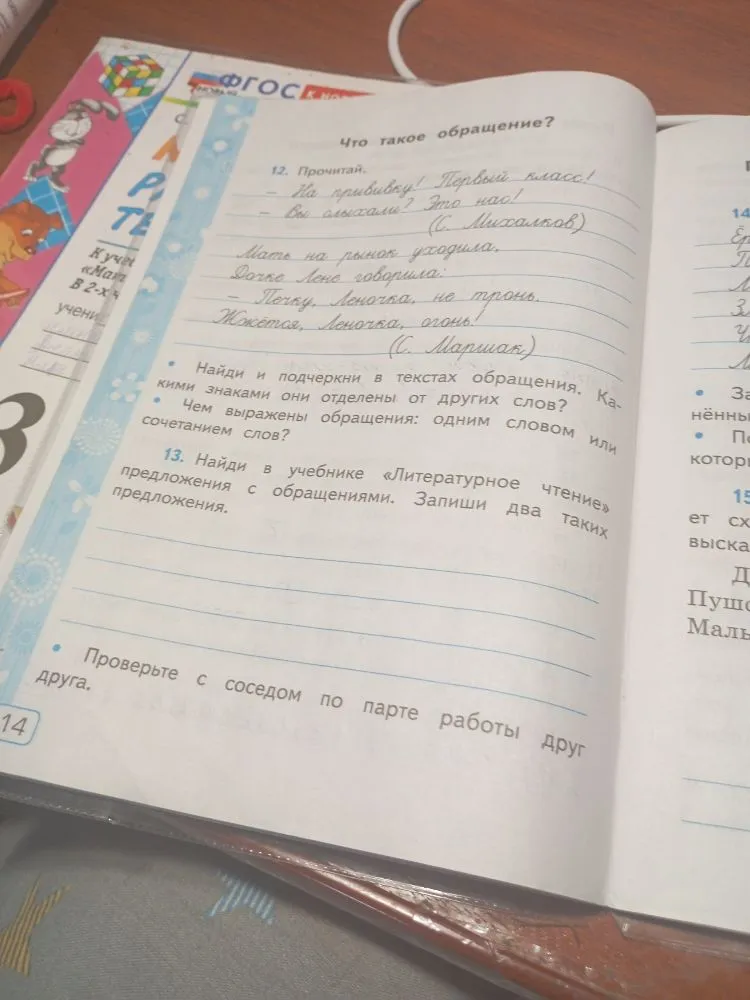 ФГОС
НОВЫЙ
К НОВ
К уче
«Мат
В 2-х ч
учени
3
Что такое обращение?
12. Прочитай.
– На прививку! Первый класс!
– Вы слыхали? Это нас!
(С. Михалков)
Мать на рынок уходила,
Дочке Лене говорила:
– Печку, Леночка, не тронь.
Жжётся, Леночка, огонь!
(С. Маршак)
• Найди и подчеркни в текстах обращения. Ка-
кими знаками они отделены от других слов?
• Чем выражены обращения: одним словом или
сочетанием слов?
13. Найди в учебнике «Литературное чтение»
предложения с обращениями. Запиши два таких
предложения.
• Проверьте с соседом по парте работы друг
друга.
14
14
• За
нённы
• По
котори
15
ет сх
выска
Д
Пушо
Маль